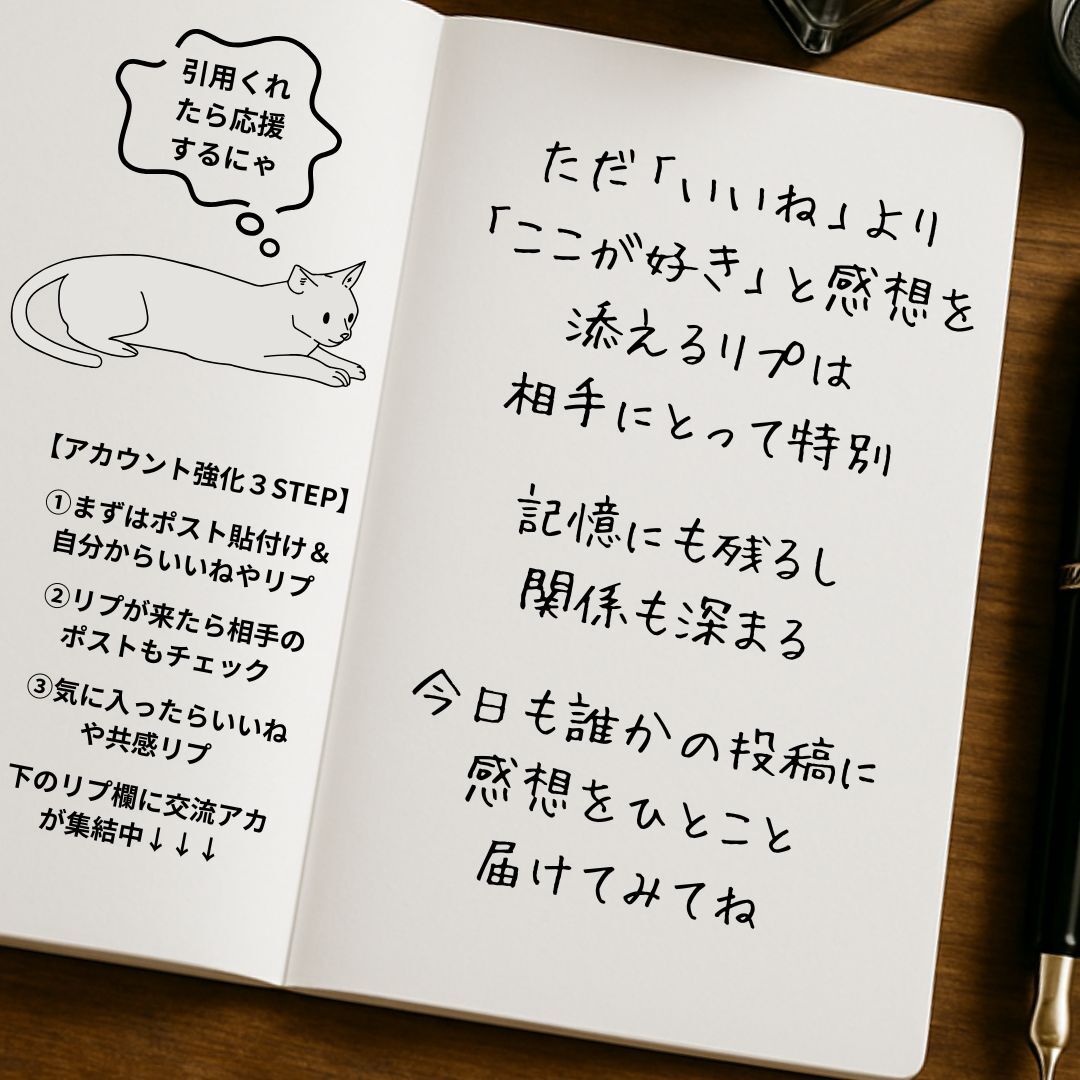 引用くれ
たら応援
するにゃ
【アカウント強化３STEP】
①まずはポスト貼付け＆
自分からいいねやリプ
②リプが来たら相手の
ポストもチェック
③気に入ったらいいね
や共感リプ
下のリプ欄に交流アカ
が集結中↓↓↓
ただ「いいね」より
「ここが好き」と感想を
添えるリプは
相手にとって特別
記憶にも残るし
関係も深まる
今日も誰かの投稿に
感想をひとこと
届けてみてね